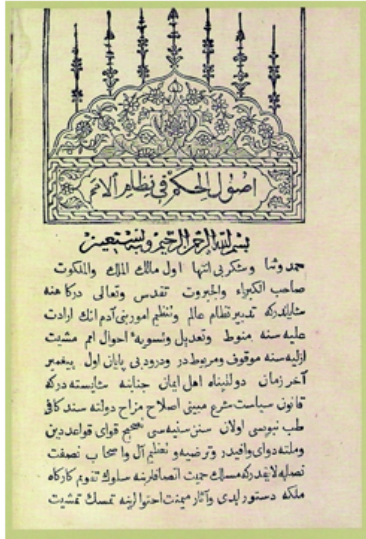 اصول الحكم فى نظام الامم
بسم الله الرحمن الرحيم وبه نستعين
حمد وثنا و شكر بى انتها اول مالك الملك والملكوت
صاحب الكبرياء والجبروت تقدس وتعالى دركاهنه
شاياندركه تدبير نظام عالم وتنظيم امور بنى آدم انك ارادت
عليه سنه منوط وتعديل وتسويهٔ احوال امم مشيت
ازليه سنه موقوف ومربوطدر ودرود بى پايان اول پيغمبر
آخر زمان دولتپناه اهل ايمان جنابنه شايسته دركه
قانون سياست شرع مبينى اصلاح مزاج دولته سند كافى
طب نبوسى اولان سنن سنيه سى تصحيح قواى قواعد دين
وملته دواى وافيدر وترضيه و تعظيم آل واصحاب نصفت
نصابه لايقدركه مسالك حميت اتصافلرينه سلوك تقويم كاركاه
ملكه دستور ابدى وآثار ميمنت احتوالرينه تمسك تمشيت